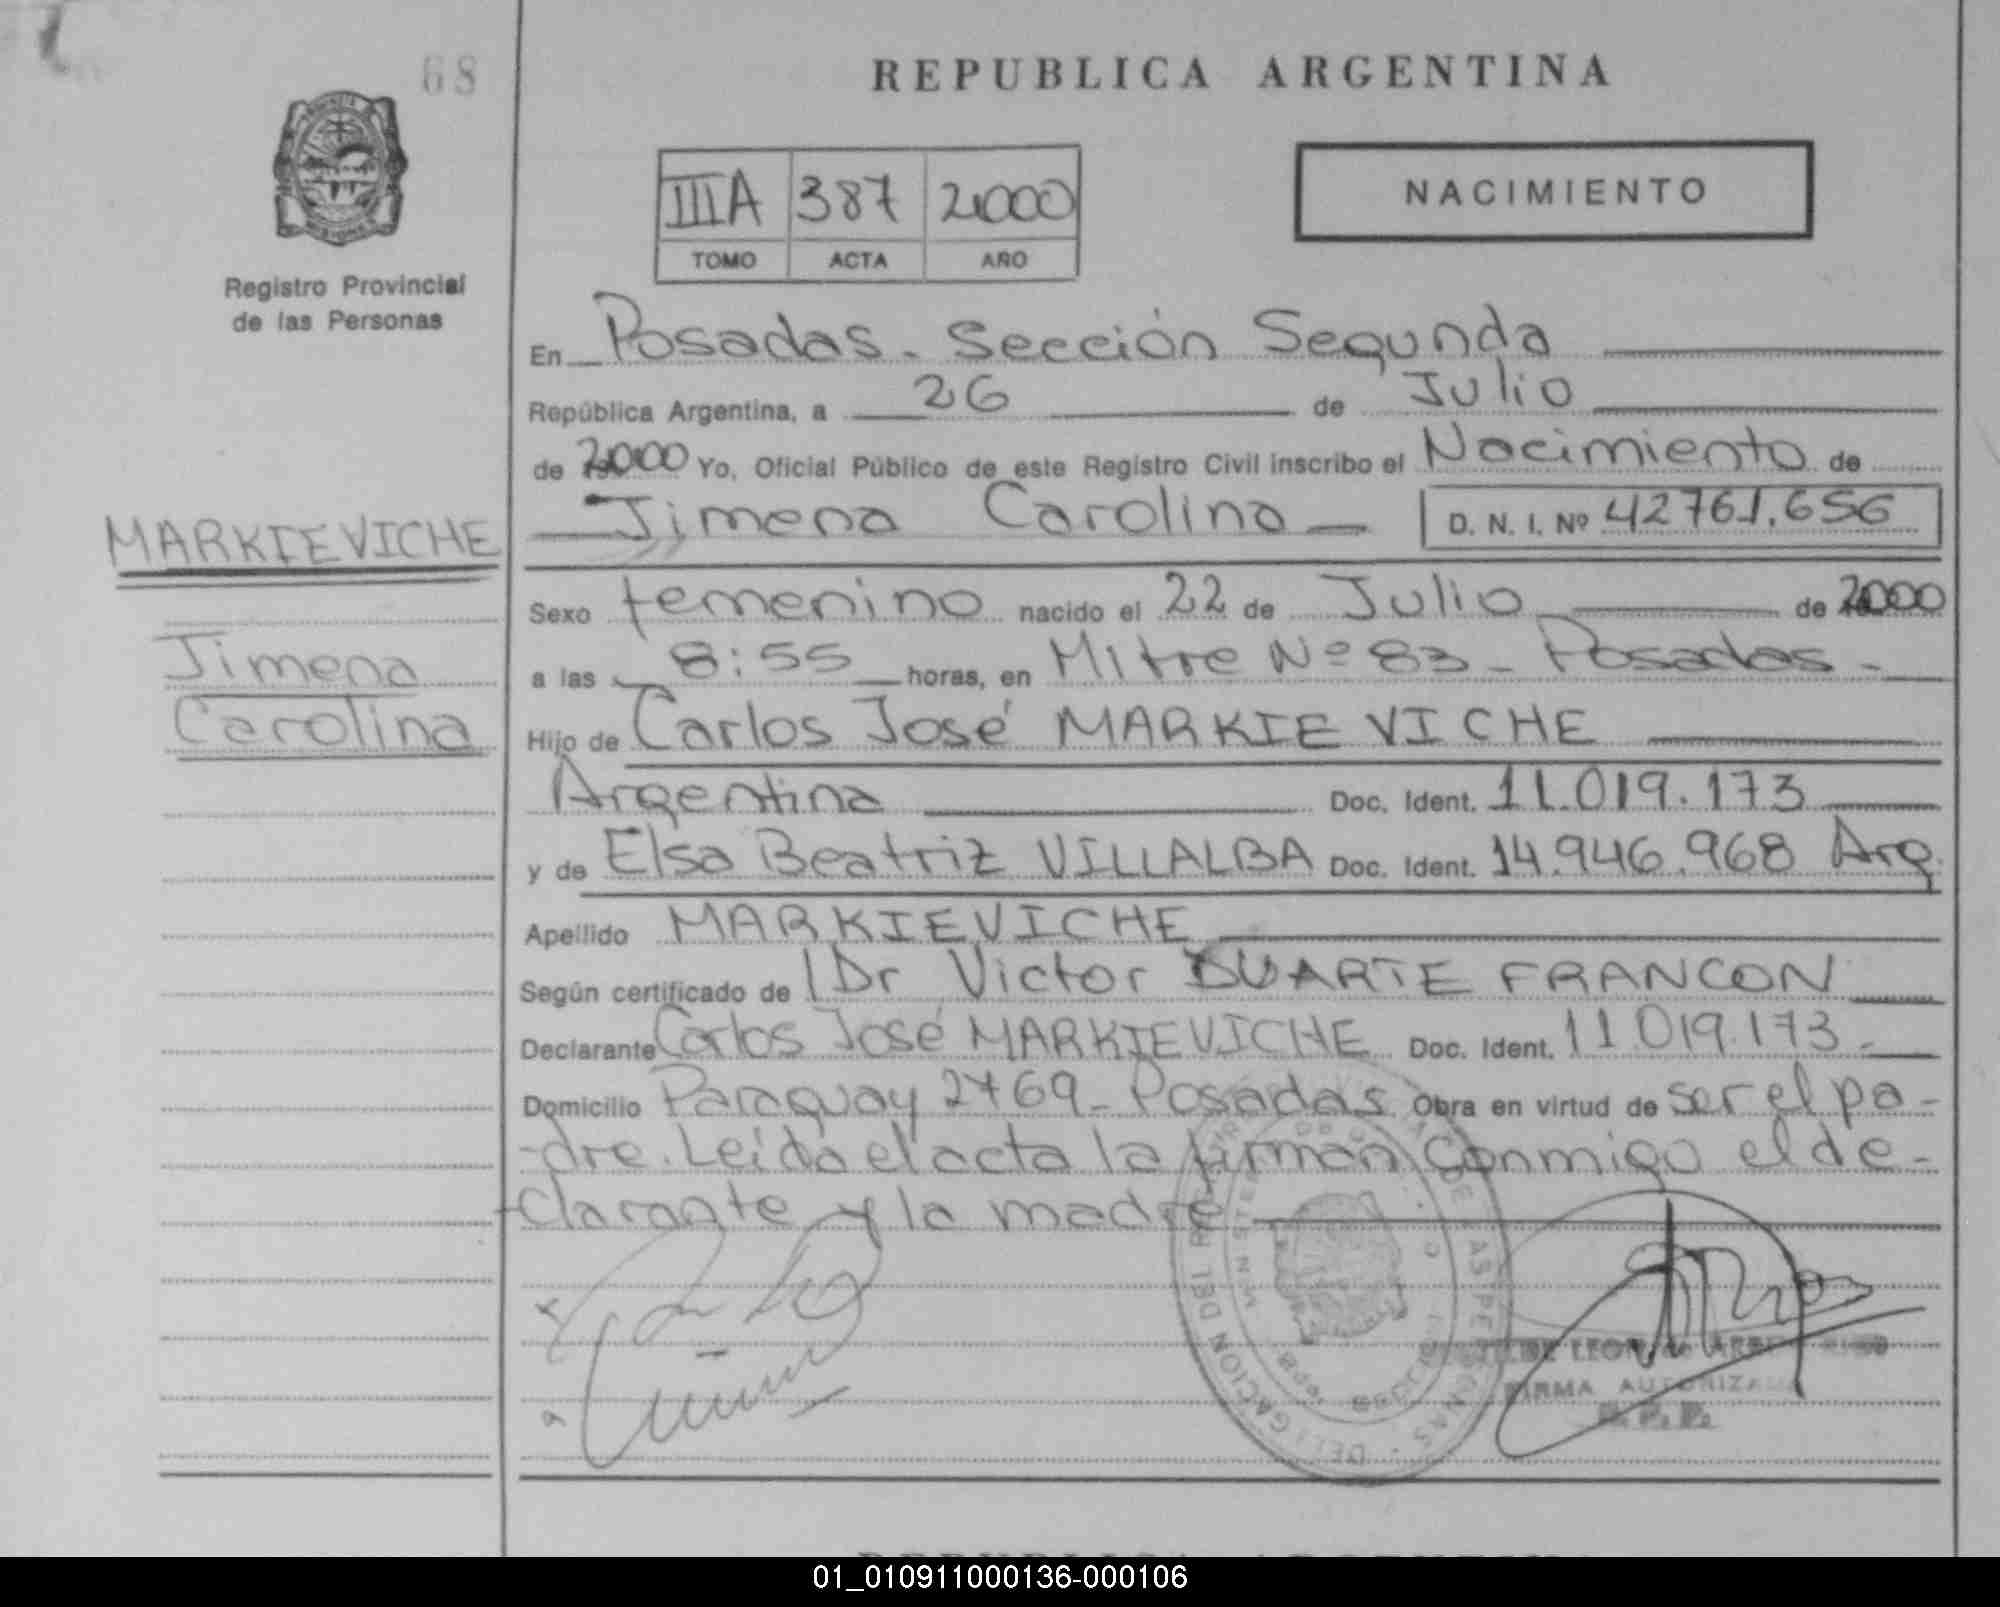 68
REPUBLICA ARGENTINA
IIIA 387 2000
TOMO ACTA AÑO
NACIMIENTO
Registro Provincial
de las Personas
En Posadas - Sección Segunda
República Argentina, a 26 de Julio
de 2000 Yo, Oficial Público de este Registro Civil inscribo el Nacimiento de
Jimena Carolina D. N. I. Nº 42761.656
MARKIEVICHE
Jimena
Carolina
Sexo femenino nacido el 22 de Julio de 2000
a las 8:55 horas, en Mitre Nº 83 - Posadas -
Hijo de Carlos José MARKIEVICHE
Argentina Doc. Ident. 11.019.173
y de Elsa Beatriz VILLALBA Doc. Ident. 14.946.968 Arg.
Apellido MARKIEVICHE
Según certificado de Dr Victor DUARTE FRANCON
Declarante Carlos José MARKIEVICHE Doc. Ident. 11.019.173 -
Domicilio Paraguay 2769 - Posadas Obra en virtud de ser el pa-
-dre. Leída el acta la firman conmigo el de-
-clarante y la madre
FIRMA AUTORIZADA
01_010911000136-000106